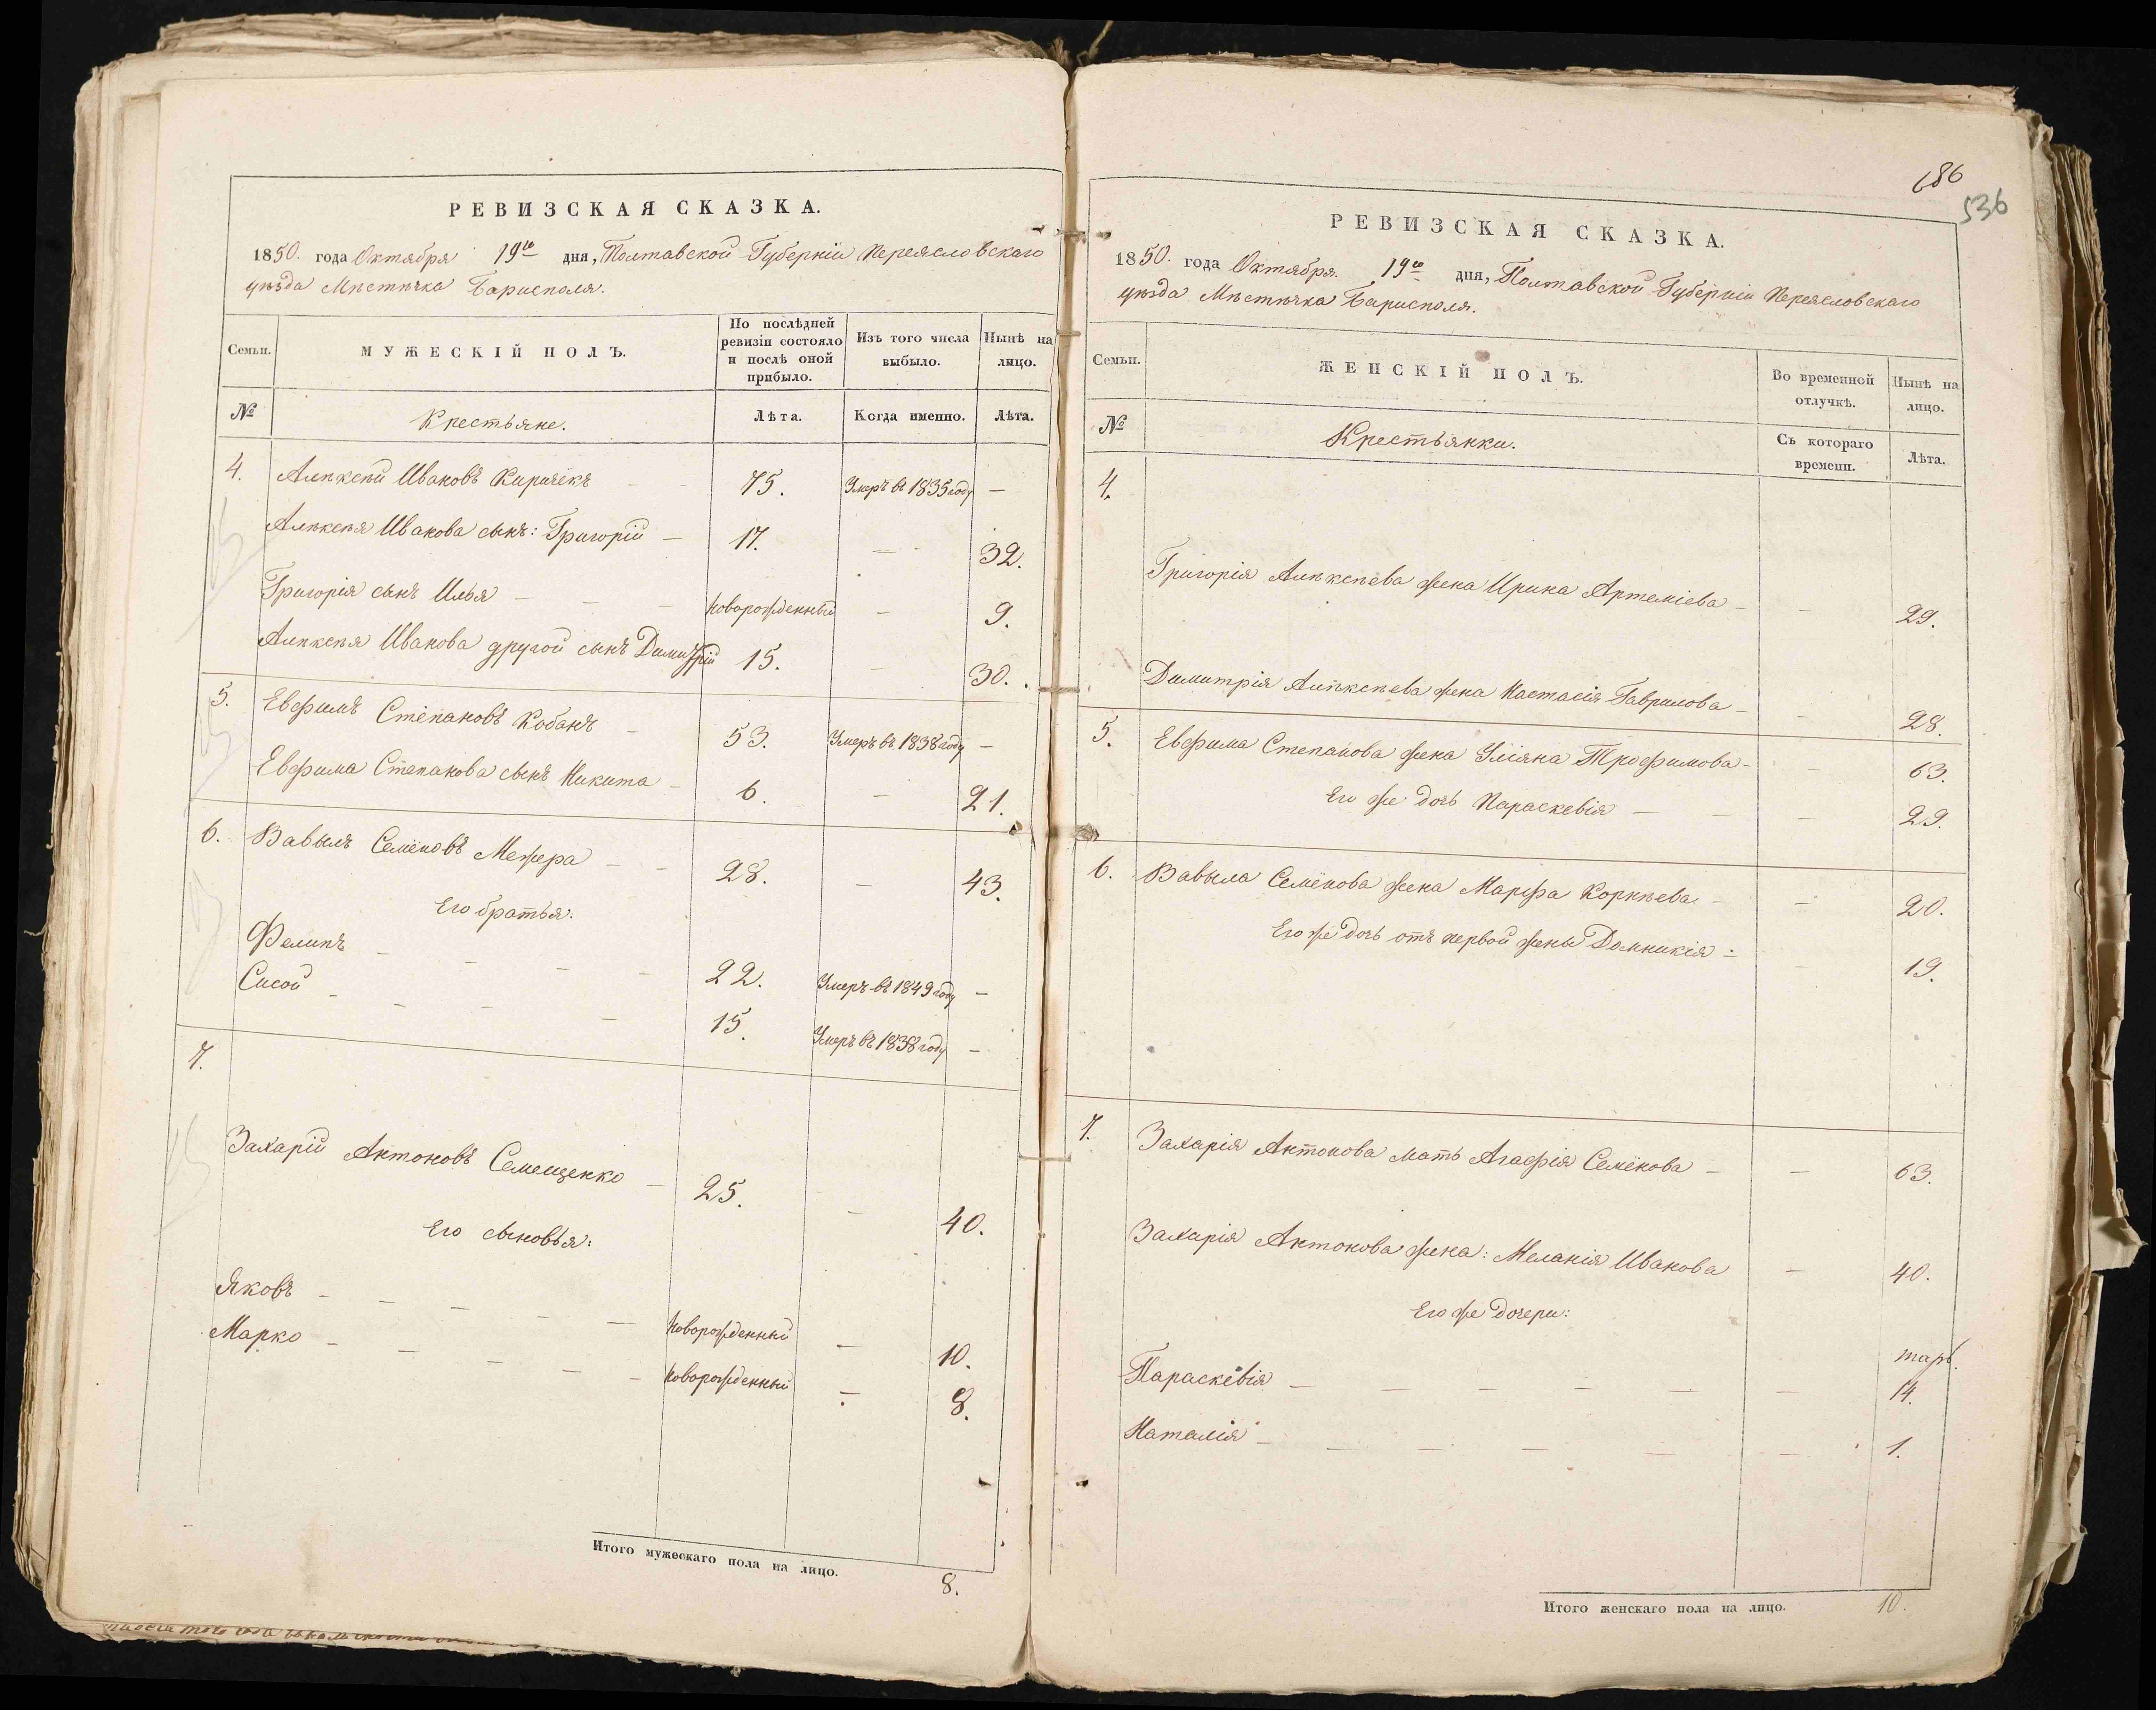 РЕВИЗСКАЯ СКАЗКА.
1850. года Октября 19го дня, Полтавской Губерніи Переясловскаго
уѣзда Мѣстѣчка Барисполя.
Семьи. МУЖЕСКІЙ ПОЛЪ. По послѣдней ревизіи состояло и послѣ оной прибыло. Изъ того числа выбыло. Нынѣ на лицо.
№ Крестьяне. Лѣта. Когда именно. Лѣта.
4. Алѣксѣй Ивановъ Киричёкъ — — 75. Умеръ въ 1835 году —
Алѣксѣя Иванова сынъ: Григорій — 17. — 32.
Григорія сынъ Илья — — — новорожденный — 9.
Алѣксѣя Иванова другой сынъ Димитрій 15. — 30.
5. Евфимъ Степановъ Кобанъ — 53. Умеръ въ 1838 году —
Евфима Степанова сынъ Никита — 6. — 21.
6. Вавылъ Семёновъ Межера — — 28. — 43.
Его братья:
Филипъ — — — — 22. Умеръ въ 1849 году —
Сисой — — — — 15. Умеръ въ 1838 году —
7.
Захарій Антоновъ Семещенко — 25. — 40.
Его сыновья:
Яковъ — — — — — новорожденный — 10.
Марко — — — — — новорожденный — 8.
Итого мужескаго пола на лицо. 8.
686
536
РЕВИЗСКАЯ СКАЗКА.
1850. года Октября. 19го дня, Полтавской Губерніи Переясловскаго
уѣзда Мѣстѣчка Барисполя.
Семьи. ЖЕНСКІЙ ПОЛЪ. Во временной отлучкѣ. Нынѣ на лицо.
№ Крестьянки. Съ котораго времени. Лѣта.
4.
Григорія Алѣксѣева жена Ирина Артеміева — — 29.
Димитрія Алѣксѣева жена Настасія Гаврилова — — 28.
5. Евфима Степанова жена Уліяна Трофимова — — 63.
Его же дочь Параскевія — — — 29.
6. Вавыла Семёнова жена Марфа Корнѣева — — 20.
Его же дочь отъ первой жены Домникія — — 19.
7. Захарія Антонова мать Агафія Семёнова — — 63.
Захарія Антонова жена: Меланія Иванова — 40.
Его же дочери:
Параскевія — — — — — — 14.
Наталія — — — — — — 1.
Итого женскаго пола на лицо. 10.